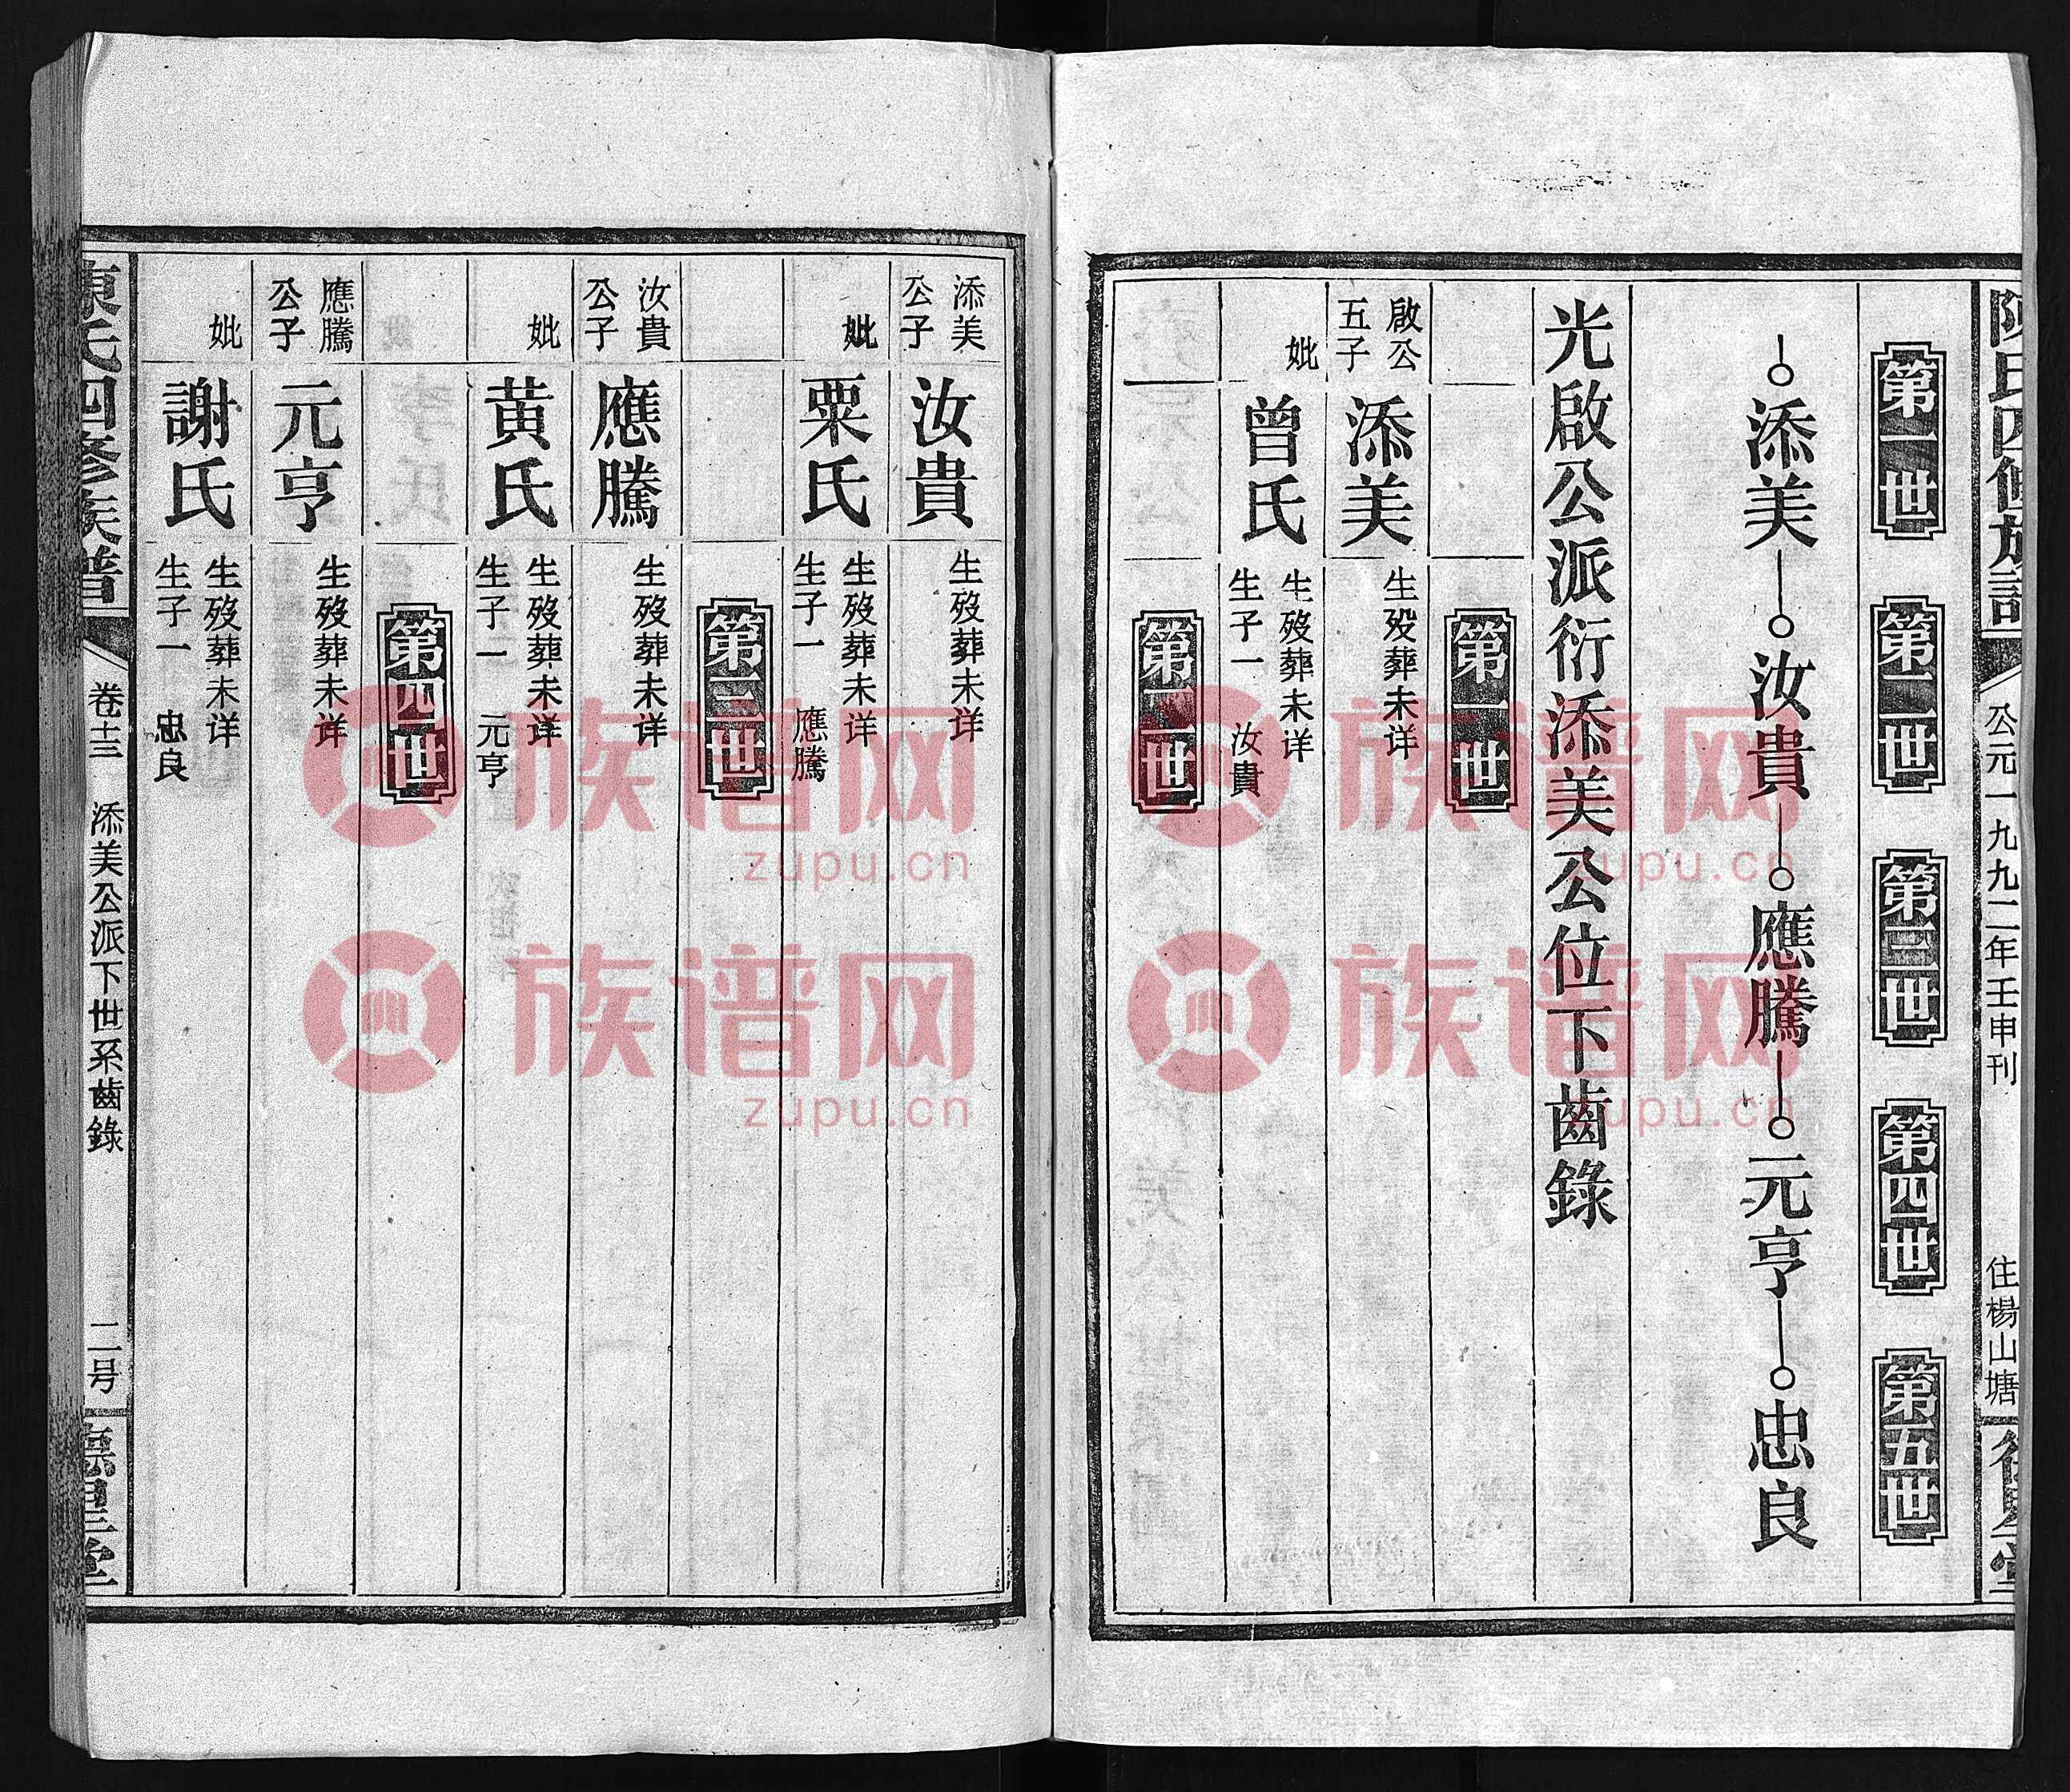 陳氏四修族譜
公元一九九二年壬申刊
住楊山塘
德星堂
第一世
第二世
第三世
第四世
第五世
添美
汝貴
應騰
元亨
忠良
光啟公派衍添美公位下齒錄
第一世
啟公
五子
添美
生殁葬未详
妣
曾氏
生殁葬未详
生子一 汝貴
第二世
添美
公子
汝貴
生殁葬未详
妣
粟氏
生殁葬未详
生子一 應騰
第三世
汝貴
公子
應騰
生殁葬未详
妣
黄氏
生殁葬未详
生子一 元亨
第四世
應騰
公子
元亨
生殁葬未详
妣
謝氏
生殁葬未详
生子一 忠良
陳氏四修族譜
卷十三
添美公派下世系齒錄
二号
德星堂
族谱网
zupu.cn
族谱网
zupu.cn
族谱网
zupu.cn
族谱网
zupu.cn